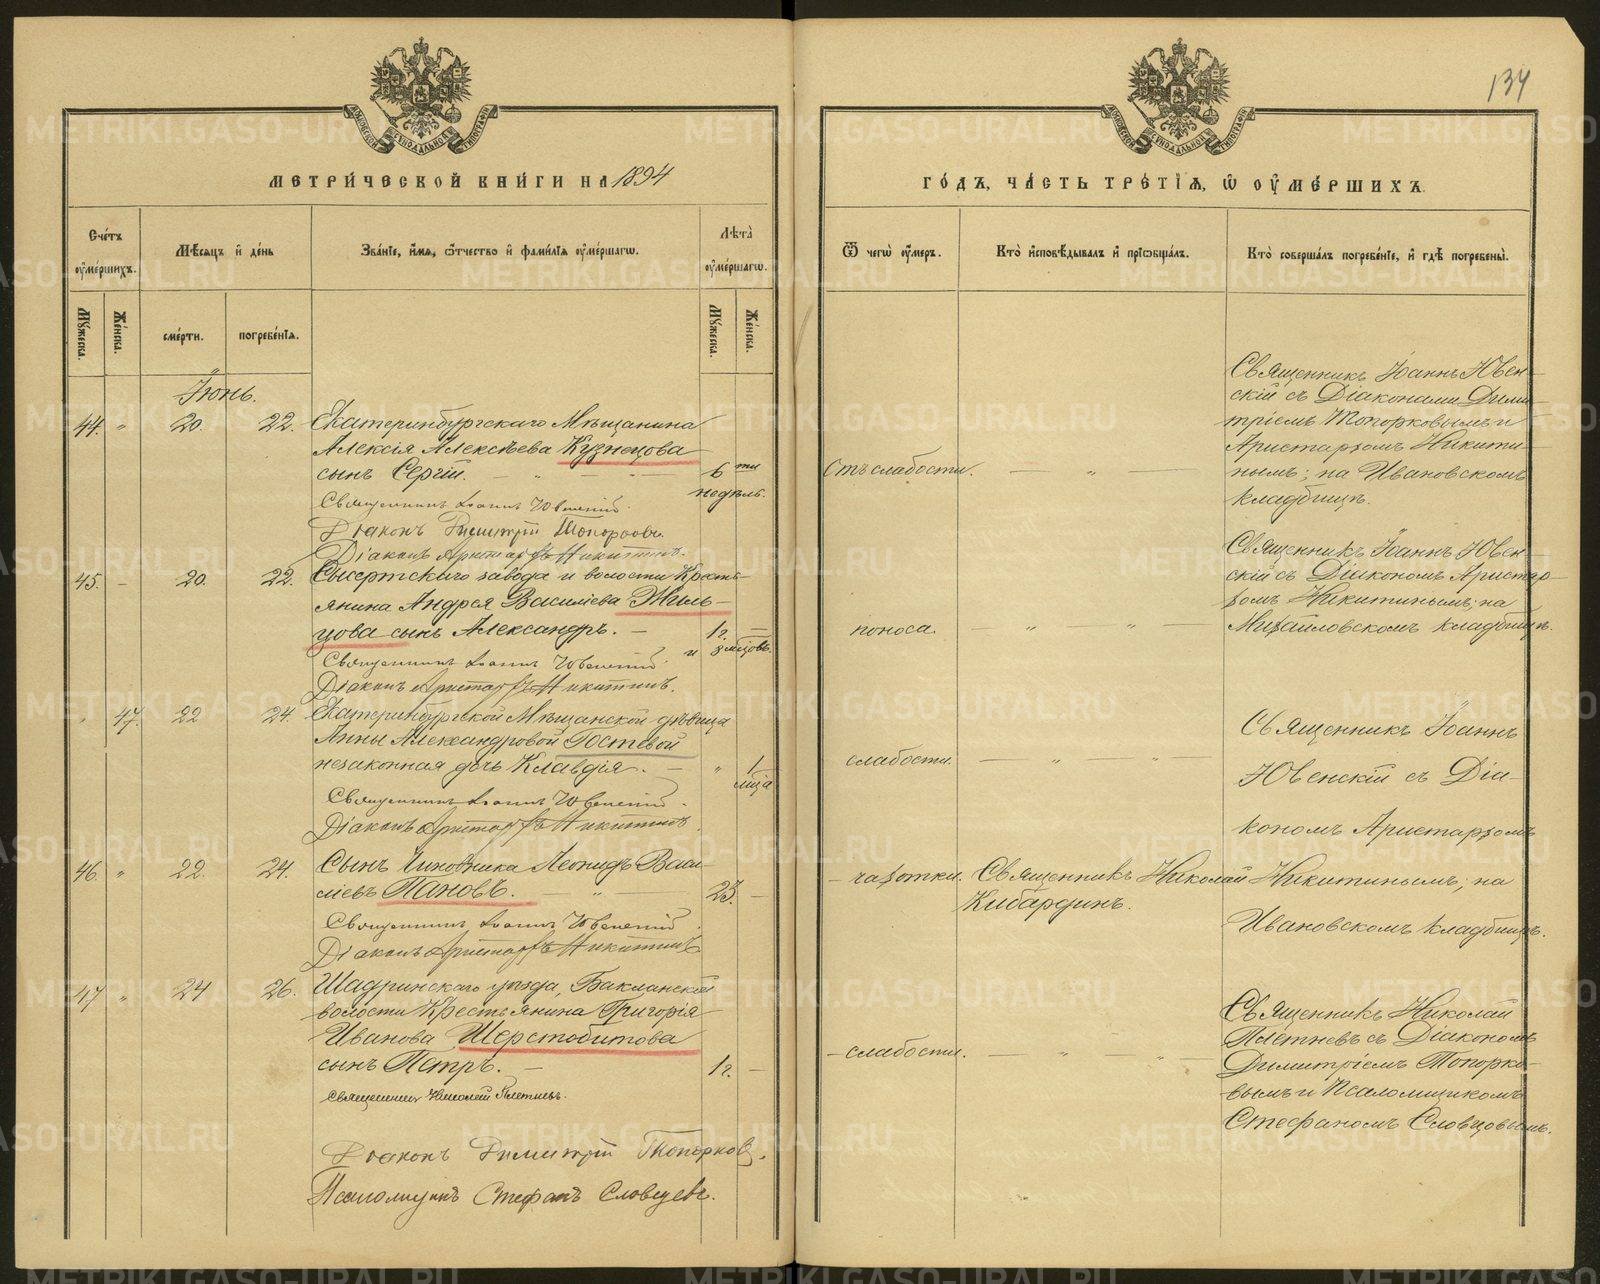 134
МЕТРИЧЕСКОЙ КНИГИ НА 1894
ГОДЪ, ЧАСТЬ ТРЕТІЯ, Ѡ ОУМЕРШИХЪ.
Счетъ оумершихъ.
Мѣсяцъ и день
Званіе, имя, ѿчество и фамилія оумершагѡ.
Лѣта оумершагѡ.
Ѿ чегѡ оумеръ.
Кто исповѣдывалъ и пріѡбщалъ.
Кто совершалъ погребеніе, и гдѣ погребены.
Мужеска.
Женска.
смерти.
погребенія.
Мужеска.
Женска.
Іюнь.
44. " 20. 22.
Екатеринбургскаго Мѣщанина
Алексія Алексѣева Кузнецова
сынъ Сергій.
6ти недѣль.
Отъ слабости.
Священникъ Іоаннъ Ювен-
скій съ Діаконами Дими-
тріемъ Топорковымъ и
Аристархомъ Никити-
нымъ; на Ивановскомъ
кладбищѣ.
Священникъ Іоаннъ Ювенскій.
Діаконъ Димитрій Топорковъ.
Діаконъ Аристархъ Никитинъ.
45. - 20. 22.
Сысертскаго завода и волости Кресть-
янина Андрея Василіева Жиль-
цова сынъ Александръ.
1 г. и 8 мѣсцовъ.
поноса.
Священникъ Іоаннъ Ювен-
скій съ Діакономъ Аристар-
хомъ Никитинымъ; на
Михайловскомъ кладбищѣ.
Священникъ Іоаннъ Ювенскій.
Діаконъ Аристархъ Никитинъ.
47. 22 24.
Екатеринбургской Мѣщанской дѣвицы
Анны Александровой Гостевой
незаконная дочь Клавдія.
" 1 мѣца
слабости.
Священникъ Іоаннъ
Ювенскій съ Діа-
кономъ Аристархомъ
Никитинымъ; на
Ивановскомъ кладбищѣ.
Священникъ Іоаннъ Ювенскій.
Діаконъ Аристархъ Никитинъ
46. " 22. 24.
Сынъ Чиновника Леонидъ Васи-
ліевъ Пановъ.
23.
чахотки.
Священникъ Николай
Кибардинъ.
Священникъ Іоаннъ Ювенскій.
Діаконъ Аристархъ Никитинъ
47 " 24 26.
Шадринскаго уѣзда, Бакланской
волости Крестьянина Григорія
Иванова Шерстобитова
сынъ Петръ.
1 г.
слабости.
Священникъ Николай
Плетневъ съ Діакономъ
Димитріемъ Топорко-
вымъ и Псаломщикомъ
Стефаномъ Словцовымъ.
Священникъ Николай Плетневъ.
Діаконъ Димитрій Топорковъ.
Псаломщикъ Стефанъ Словцовъ.
METRIKI.GASO-URAL.RU